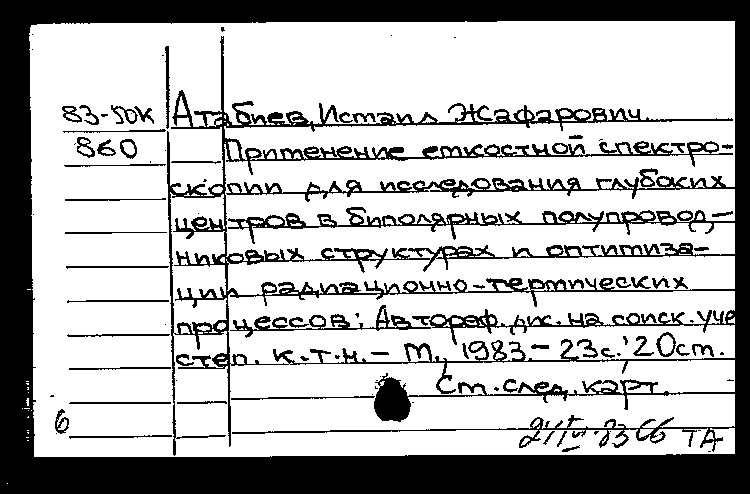 83-50к Атабиев, Исмаил Жафарович.
860 Применение емкостной спектро-
скопии для исследования глубоких
центров в биполярных полупровод-
никовых структурах и оптимиза-
ции радиационно-термических
процессов: Автореф. дис. на соиск. уче
степ. к.т.н. - М., 1983. - 23с.; 20см.
См. след. карт.
6
83 СБ ТА